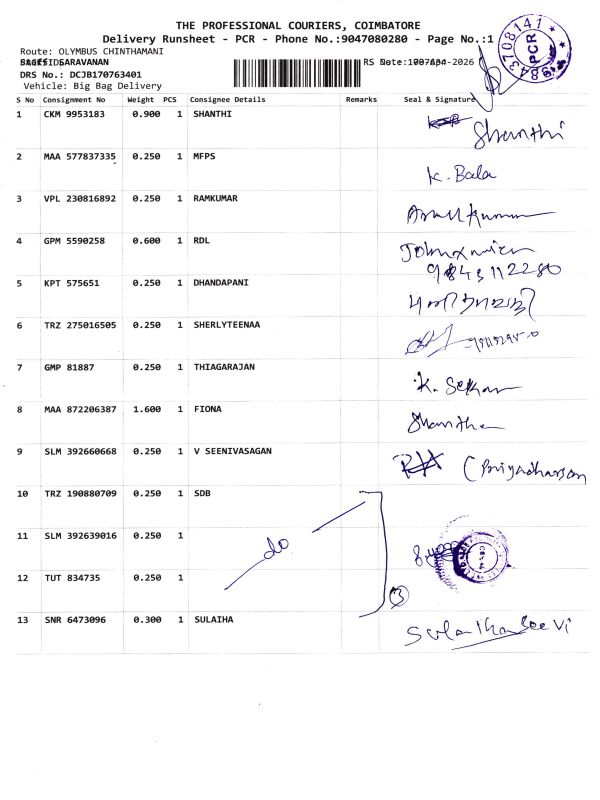 THE PROFESSIONAL COURIERS, COIMBATORE
Delivery Runsheet - PCR - Phone No.:9047080280 - Page No.:1
Route: OLYMBUS CHINTHAMANI
SARAVANAN
DRS No.: DCJB170763401
Vehicle: Big Bag Delivery
S No Consignment No Weight PCS Consignee Details Remarks Seal & Signature
1 CKM 9953183 0.900 1 SHANTHI Shanthi
2 MAA 577837335 0.250 1 MFPS K. Bala
3 VPL 230816892 0.250 1 RAMKUMAR
4 GPM 5590258 0.600 1 RDL
9843112280
5 KPT 575651 0.250 1 DHANDAPANI
6 TRZ 275016505 0.250 1 SHERLYTEENAA
7 GMP 81887 0.250 1 THIAGARAJAN K. Sekar
8 MAA 872206387 1.600 1 FIONA Shantha
9 SLM 392660668 0.250 1 V SEENIVASAGAN
10 TRZ 190880709 0.250 1 SDB
11 SLM 392639016 0.250 1
do
12 TUT 834735 0.250 1
3
13 SNR 6473096 0.300 1 SULAIHA
PCR